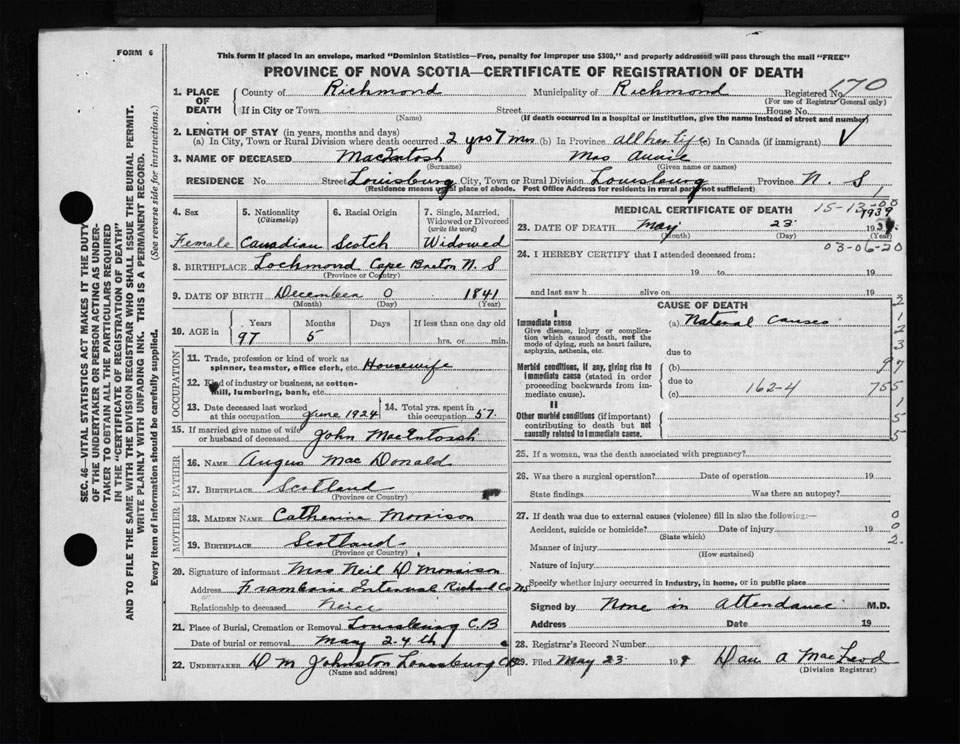 FORM 6
This form if placed in an envelope, marked "Dominion Statistics—Free, penalty for improper use $300," and properly addressed will pass through the mail "FREE"
PROVINCE OF NOVA SCOTIA—CERTIFICATE OF REGISTRATION OF DEATH
SEC. 46—VITAL STATISTICS ACT MAKES IT THE DUTY
OF THE UNDERTAKER OR PERSON ACTING AS UNDER-
TAKER TO OBTAIN ALL THE PARTICULARS REQUIRED
IN THE "CERTIFICATE OF REGISTRATION OF DEATH"
AND TO FILE THE SAME WITH THE DIVISION REGISTRAR WHO SHALL ISSUE THE BURIAL PERMIT.
WRITE PLAINLY WITH UNFADING INK. THIS IS A PERMANENT RECORD.
Every item of information should be carefully supplied. (See reverse side for instructions.)
1. PLACE OF DEATH County of Richmond Municipality of Richmond Registered No. 170
(For use of Registrar General only)
If in City or Town Street House No.
(Name) (If death occurred in a hospital or institution, give the name instead of street and number)
2. LENGTH OF STAY (in years, months and days)
(a) In City, Town or Rural Division where death occurred 2 yrs 7 mos (b) In Province all her life (c) In Canada (if immigrant)
3. NAME OF DECEASED MacIntosh Mrs
(Surname) (Given name or names)
RESIDENCE No. Street Louisburg City, Town or Rural Division Louisburg Province N. S
(Residence means usual place of abode. Post Office Address for residents in rural parts not sufficient)
4. Sex 5. Nationality 6. Racial Origin 7. Single, Married, Widowed or Divorced
(Citizenship) (write the word)
Female Canadian Scotch Widowed
8. BIRTHPLACE Lochmond Cape Breton N. S
(Province or Country)
9. DATE OF BIRTH December 0 1841
(Month) (Day) (Year)
10. AGE in Years Months Days If less than one day old
97 5 hrs. or min.
OCCUPATION
11. Trade, profession or kind of work as
spinner, teamster, office clerk, etc. Housewife
12. Kind of industry or business, as cotton-
mill, lumbering, bank, etc.
13. Date deceased last worked
at this occupation June 1924
14. Total yrs. spent in
this occupation 57
15. If married give name of wife
or husband of deceased John MacIntossh
FATHER
16. NAME Angus MacDonald
17. BIRTHPLACE Scotland
(Province or Country)
MOTHER
18. MAIDEN NAME Catherine Morrison
19. BIRTHPLACE Scotland
(Province or Country)
20. Signature of informant Mrs Neil D Morrison
Address Framboise Intervual Richmd Co NS
Relationship to deceased Neice
21. Place of Burial, Cremation or Removal Louisburg C.B
Date of burial or removal May 24th
22. UNDERTAKER D M Johnston Louisburg CB
(Name and address)
MEDICAL CERTIFICATE OF DEATH 15-13-00
1939
23. DATE OF DEATH May 23 1939
(Month) (Day) (Year)
03-06-20
24. I HEREBY CERTIFY that I attended deceased from:
19 to 19
and last saw h alive on 19
CAUSE OF DEATH
I
Immediate cause (a) Natural Causes
Give disease, injury or complica-
tion which caused death, not the
mode of dying, such as heart failure,
asphyxia, asthenia, etc.
due to
Morbid conditions, if any, giving rise to
immediate cause (stated in order
proceeding backwards from im-
mediate cause).
(b)
due to 162-4
(c)
II
Other morbid conditions (if important)
contributing to death but not
causally related to immediate cause.
2
1
2
3
97
755
1
5
5
25. If a woman, was the death associated with pregnancy?
26. Was there a surgical operation? Date of operation 19
State findings Was there an autopsy?
27. If death was due to external causes (violence) fill in also the following:— 0
Accident, suicide or homicide? Date of injury 19 0
(State which) 2
Manner of injury
(How sustained)
Nature of injury
Specify whether injury occurred in industry, in home, or in public place
Signed by None in Attendance M.D.
Address Date 19
28. Registrar's Record Number
29. Filed May 23 19 9 Dan A MacLeod
(Division Registrar)